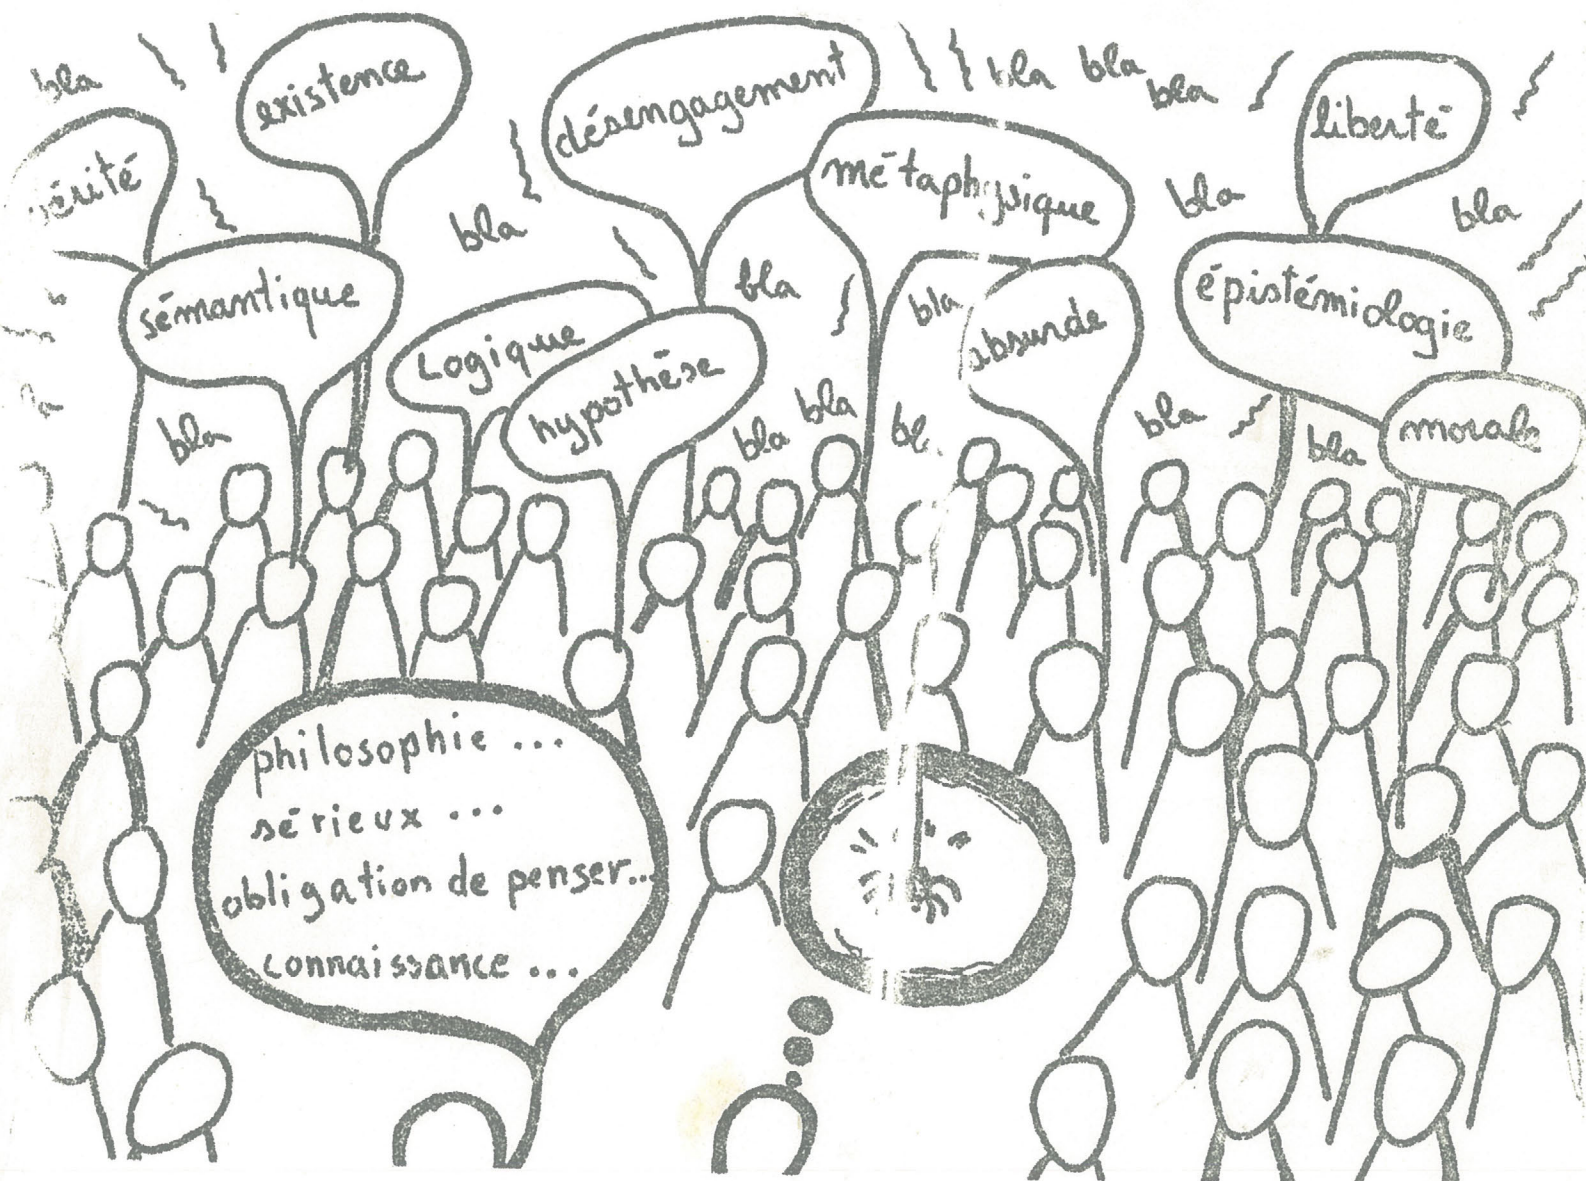 bla
existence
désengagement
bla
bla
bla
liberté
vérité
métaphysique
bla
bla
bla
sémantique
bla
bla
épistémiologie
logique
hypothèse
absurde
morale
bla
bla
bla
bla
bla
philosophie ...
sérieux ...
obligation de penser...
connaissance ...